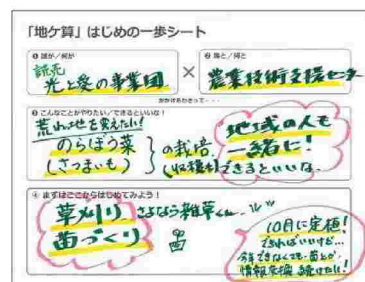 「地ケ算」はじめの一歩シート
❶ 誰が／何が
読売
光と愛の事業団
×
❷ 誰と／何と
農業技術支援センター
かけあわさって・・・
❸ こんなことがやりたい／できるといいな！
荒れ地を変えたい！
のらぼう菜
(さつまいも)
の栽培
(収穫も)できるといいな。
地域の人も
一緒に！
④ まずはここからはじめてみよう！
草刈り さよなら雑草くん
苗づくり
10月に定植！
できればいいけど…
今年できなくても 苗とか
情報交換 続けたい！